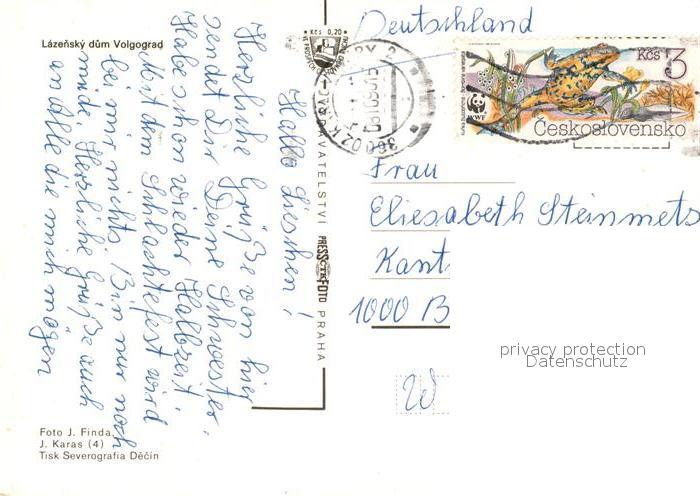 Lázeňský dům Volgograd
Hallo Lieschen!
Herzliche Grüße von hier
sendet Dir Deine Schwester.
Habe schon wieder Halbzeit.
Mit dem Schlachtefest wird
bei mir nichts. Bin nur noch
müde. Herzliche Grüße auch
an Alle die mich mögen
Foto J. Finda,
J. Karas (4)
Tisk Severografia Děčín
Kčs 0,20
PRESSFOTO PRAHA
Deutschland
Kčs 3
WWF
Československo
360 02 K
Frau
Eliesabeth Steinmets
Kant
1000 B
W
privacy protection
Datenschutz